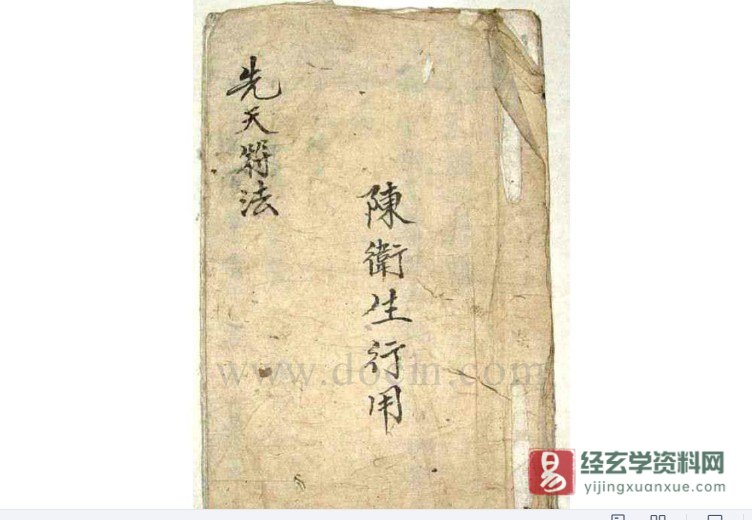 先天符法
陳衛生行用
www.docin.com
易
经玄学资料网
yijingxuanxue.com